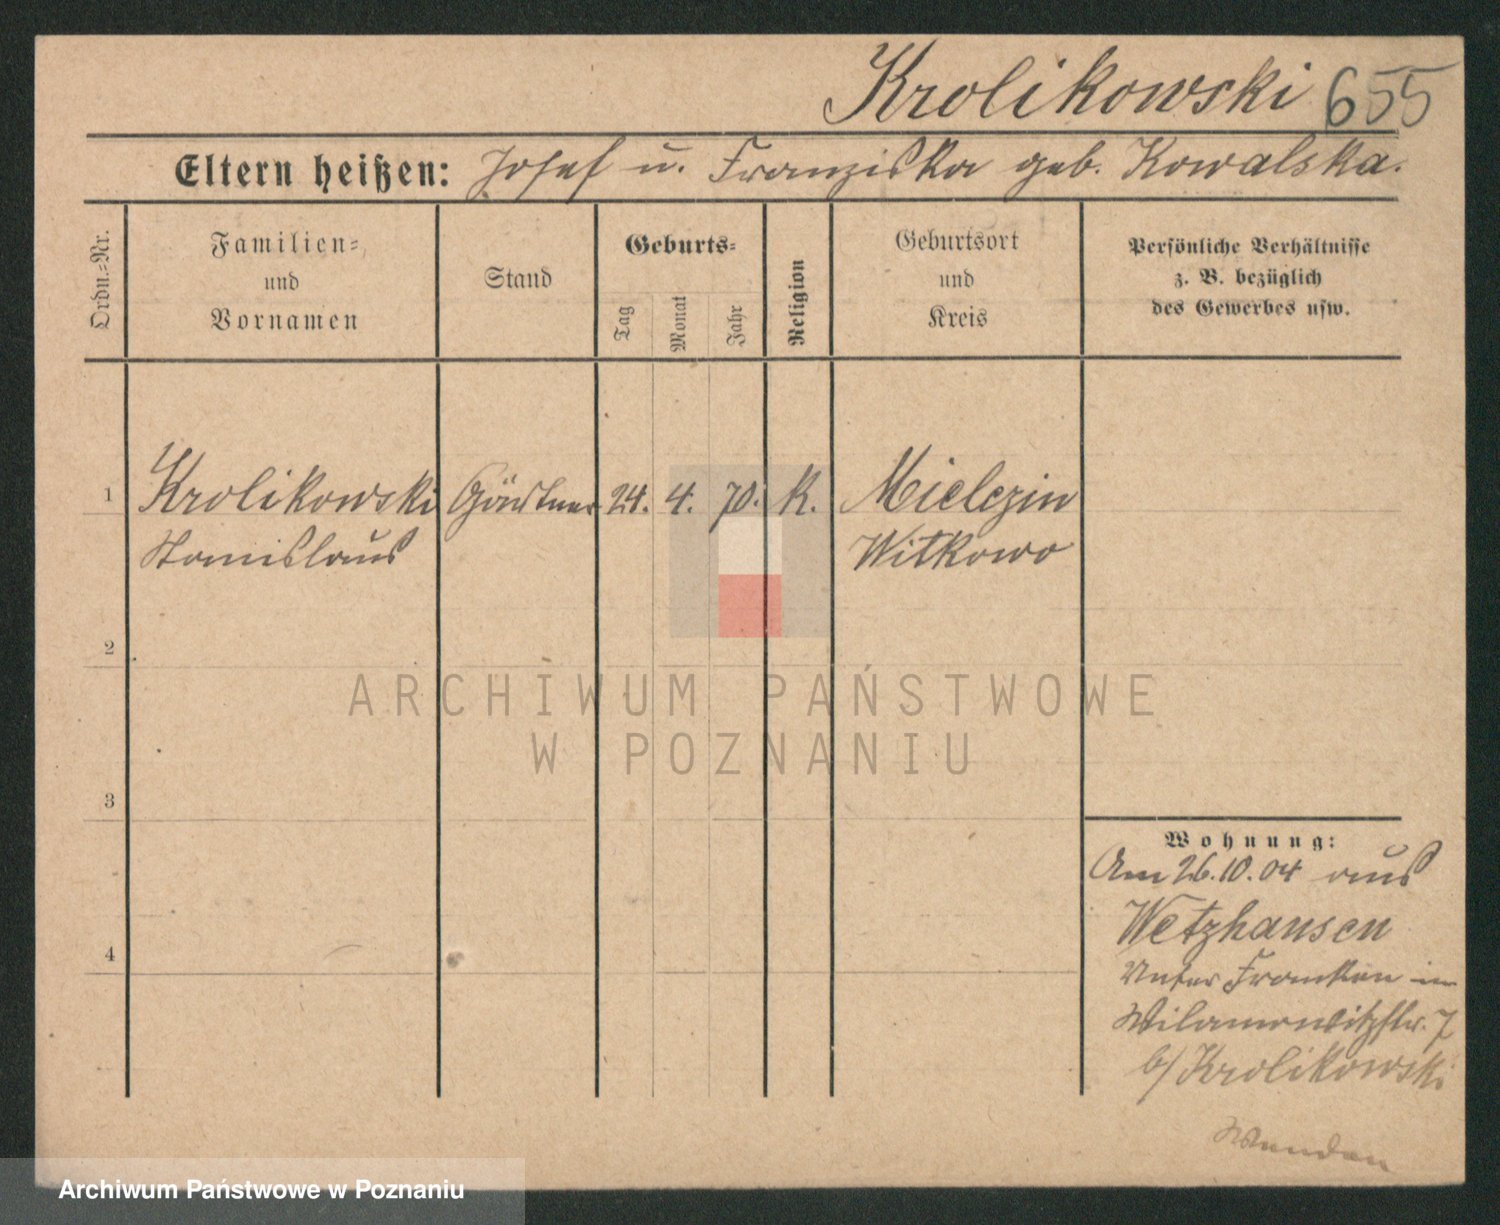 Krolikowski 655
Eltern heißen: Josef u. Franziska geb. Kowalska.
Ordn.-Nr.
Familien-
und
Vornamen
Stand
Geburts-
Tag
Monat
Jahr
Religion
Geburtsort
und
Kreis
Persönliche Verhältnisse
z. B. bezüglich
des Gewerbes usw.
1 Krolikowski Gärtner 24. 4. 70. K. Mielczin
Stanislaus Witkowo
2
ARCHIWUM PAŃSTWOWE
W POZNANIU
3
Wohnung:
Am 26.10.04 aus
Wetzhausen
4
Unter Franken in
Wilamowitzstr. 7
b/ Krolikowski
Archiwum Państwowe w Poznaniu